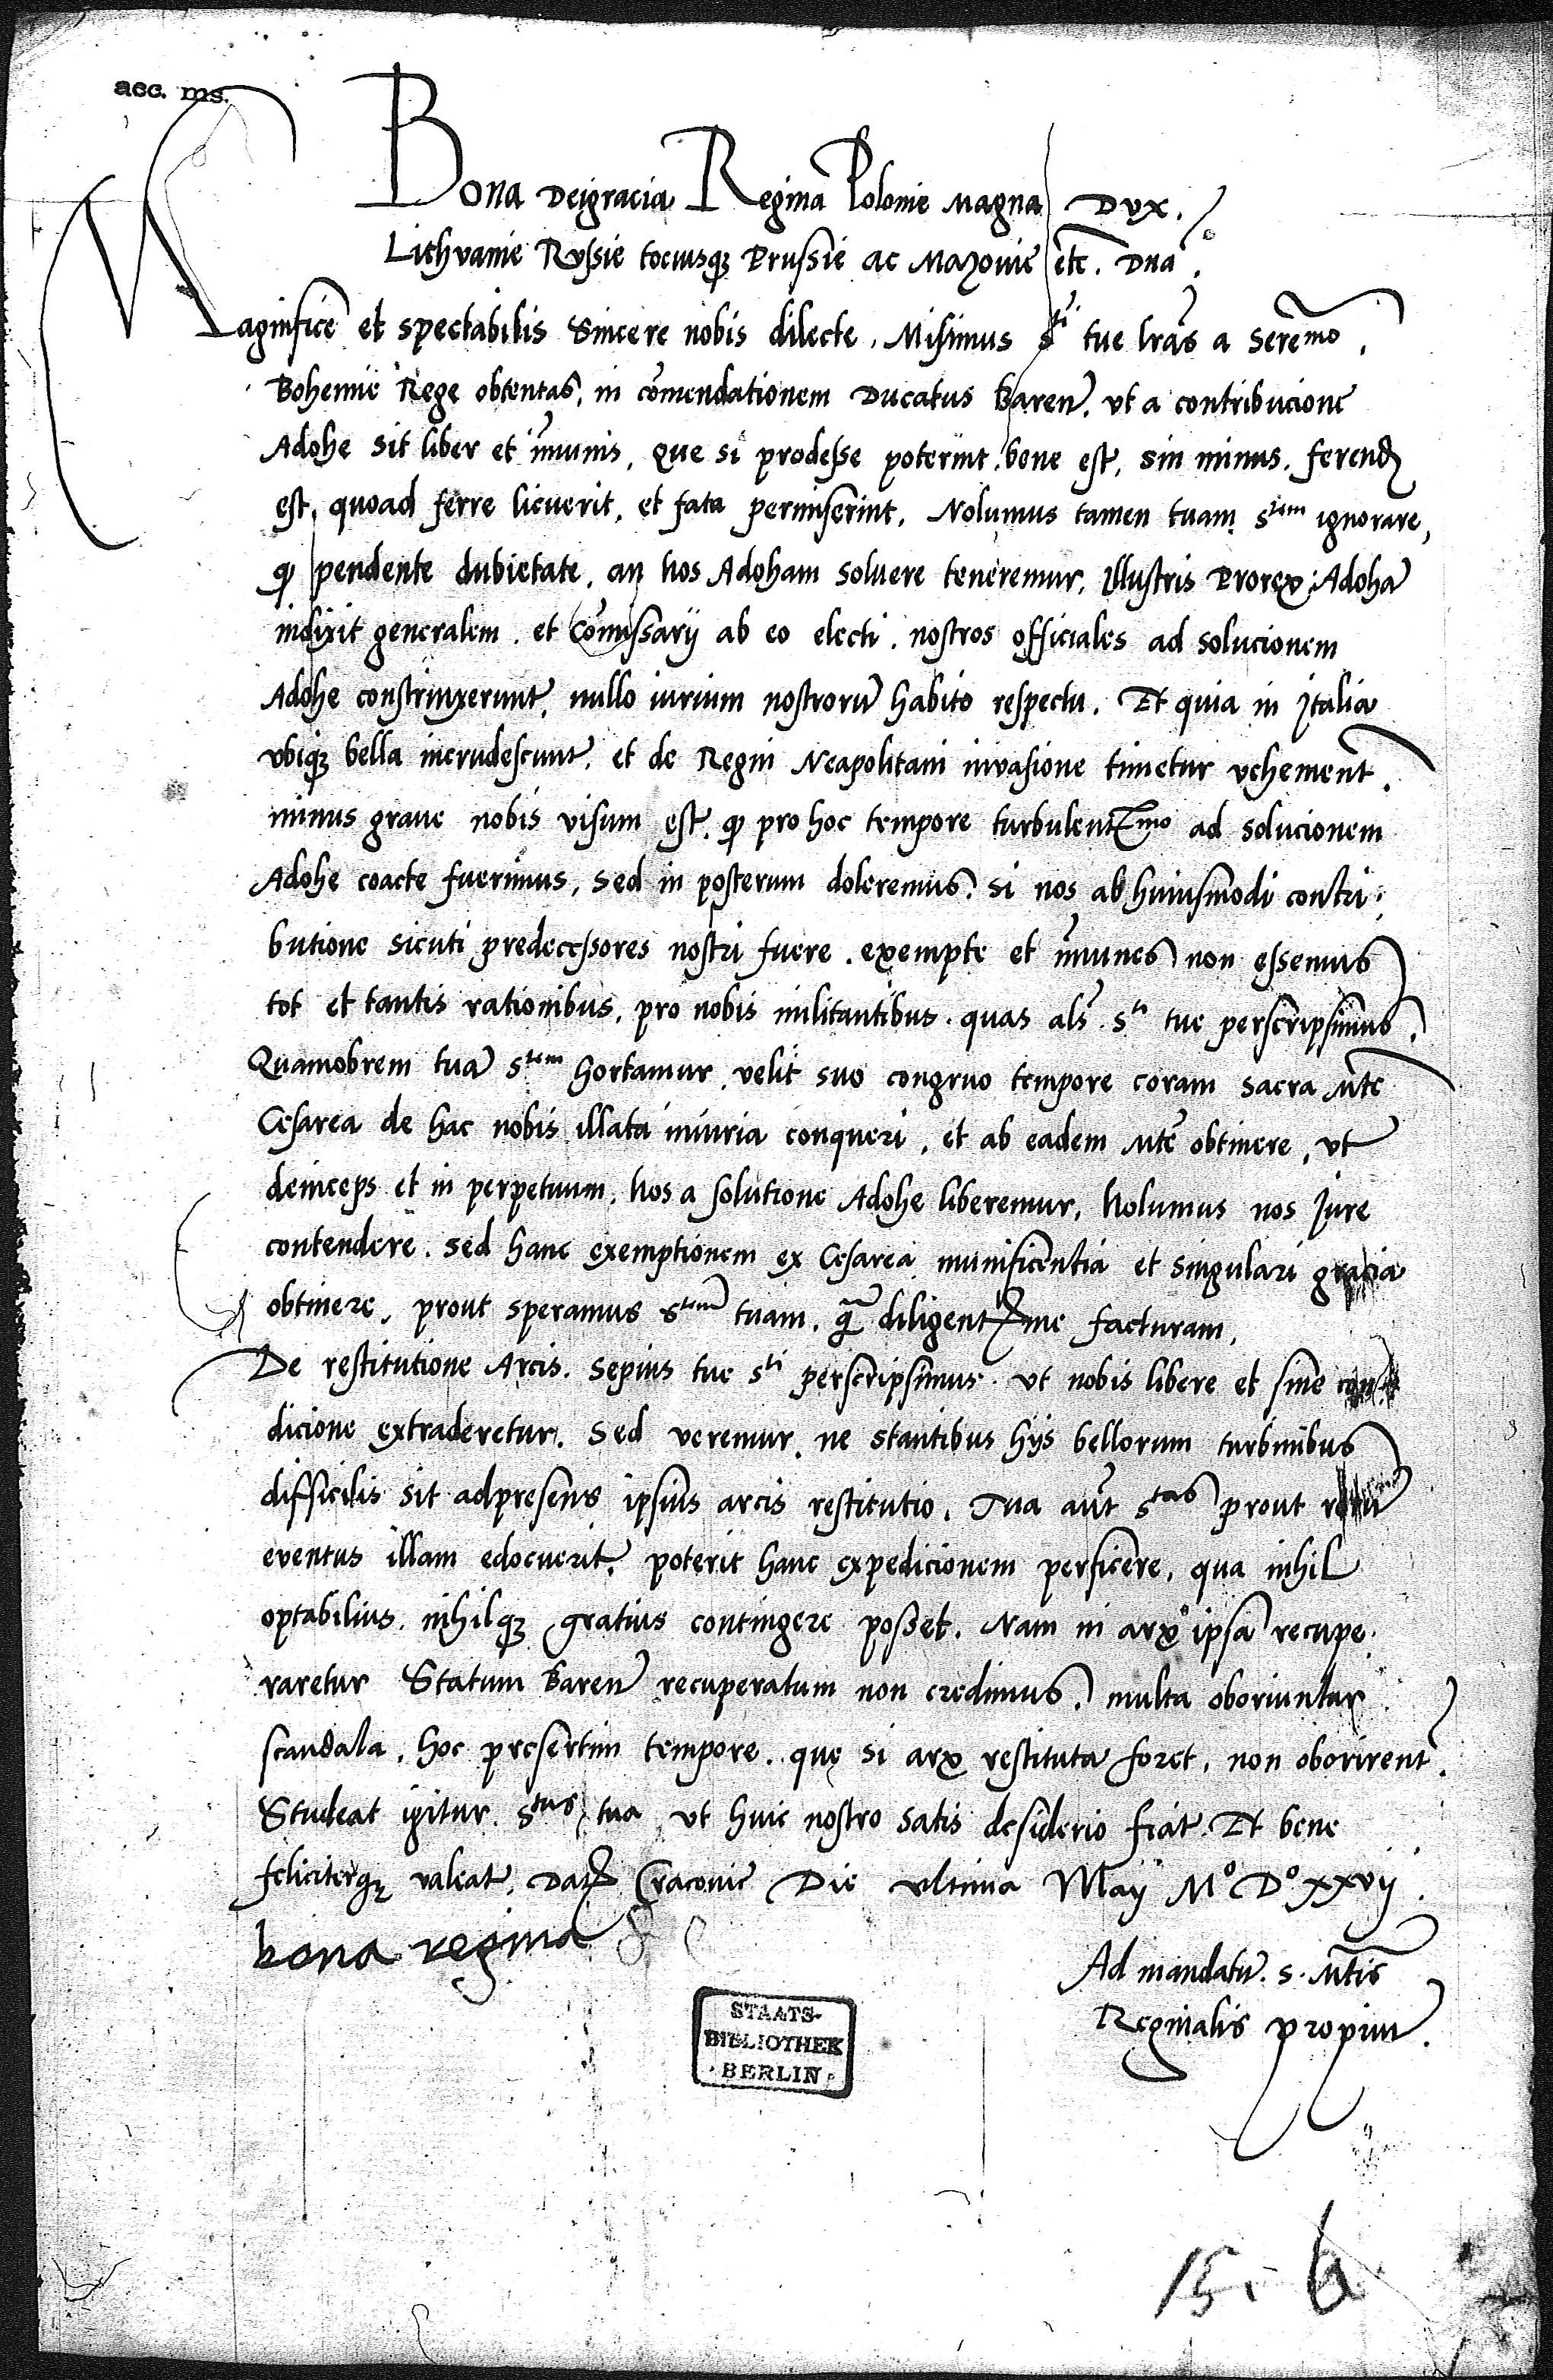 acc. ms.
Bona Deigracia Regina Polonie Magna Dux.
Lithvanie Russie tociusqз Prussie ac Mazovie etc. Dna.
Magnifice et spectabilis Sincere nobis dilecte. Misimus sti tue lras a seremo.
Bohemie Rege obtentas, in comendationem Ducatus Baren. vt a contribucione
Adohe sit liber et imunis, que si prodesse poterint bene est, sin minus. ferend
est, quoad ferre licuerit, et fata permiserint. Nolumus tamen tuam stem ignorare,
q pendente dubietate. an nos Adoham soluere teneremur, Illustris Prorex Adoha
indixit generalem. et Comissarij ab eo electi. nostros officiales ad solucionem
Adohe constrinxerunt, nullo iurium nostroru habito respectu. Et quia in Italia
vbiqз bella incrudescunt, et de Regni Neapolitani invasione timetur vehement.
minus graue nobis visum est. q pro hoc tempore turbulentmo ad solucionem
Adohe coacte fuerimus, sed in posterum doleremus. si nos ab huiusmodi contri:
butione sicuti predecessores nostri fuere. exempte et imunes non essemus
tot et tantis rationibus, pro nobis militantibus. quas als. sti tue perscripsimus.
Quamobrem tua stem hortamur, velit suo congruo tempore coram sacra Mte
Cesarea de hac nobis illata iniuria conqueri, et ab eadem Mte obtinere, vt
deinceps et in perpetuum, nos a solutione Adohe liberemur, Nolumus nos Jure
contendere. sed hanc exemptionem ex Cesarea munificentia et singulari gracia
obtinere, prout speramus stem tuam. qm diligentme facturam,
De restitutione Arcis. sepius tue sti perscripsimus. vt nobis libere et sine con
dicione extraderetur. Sed veremur. ne stantibus hijs bellorum turbinibus
difficilis sit adpresens ipsius arcis restitutio. Tua aut stas prout reru
eventus illam edocuerit, poterit hanc expedicionem perficere, qua nihil
optabilius. nihilqз gratius contingere posset. Nam ni arx ipsa recupe
raretur Statum Baren recuperatum non credimus. multa oboriuntur
scandala, hoc presertim tempore. que si arx restituta foret, non oborirent.
Studeat igitur. stas tua vt huic nostro satis desiderio fiat. Et bene
feliciterqз valeat. Dat Cracovie Die vltima Maij Mº Dº xxvij.
bona regina
Ad mandatu. s. Mtis
Reginalis propiu.
STAATS-
BIBLIOTHEK
BERLIN
15. 6